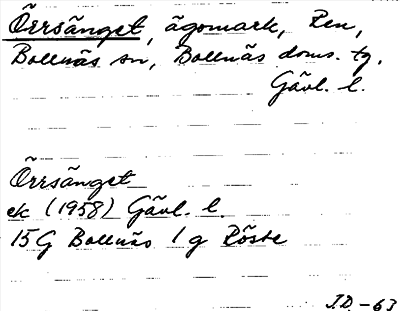 Örrsänget, ägomark, Ren,
Bollnäs sn, Bollnäs doms. tg,
Gävl. l.
Örrsänget
ek (1958) Gävl. l.
15G Bollnäs 1 g Röste
J.D.-63